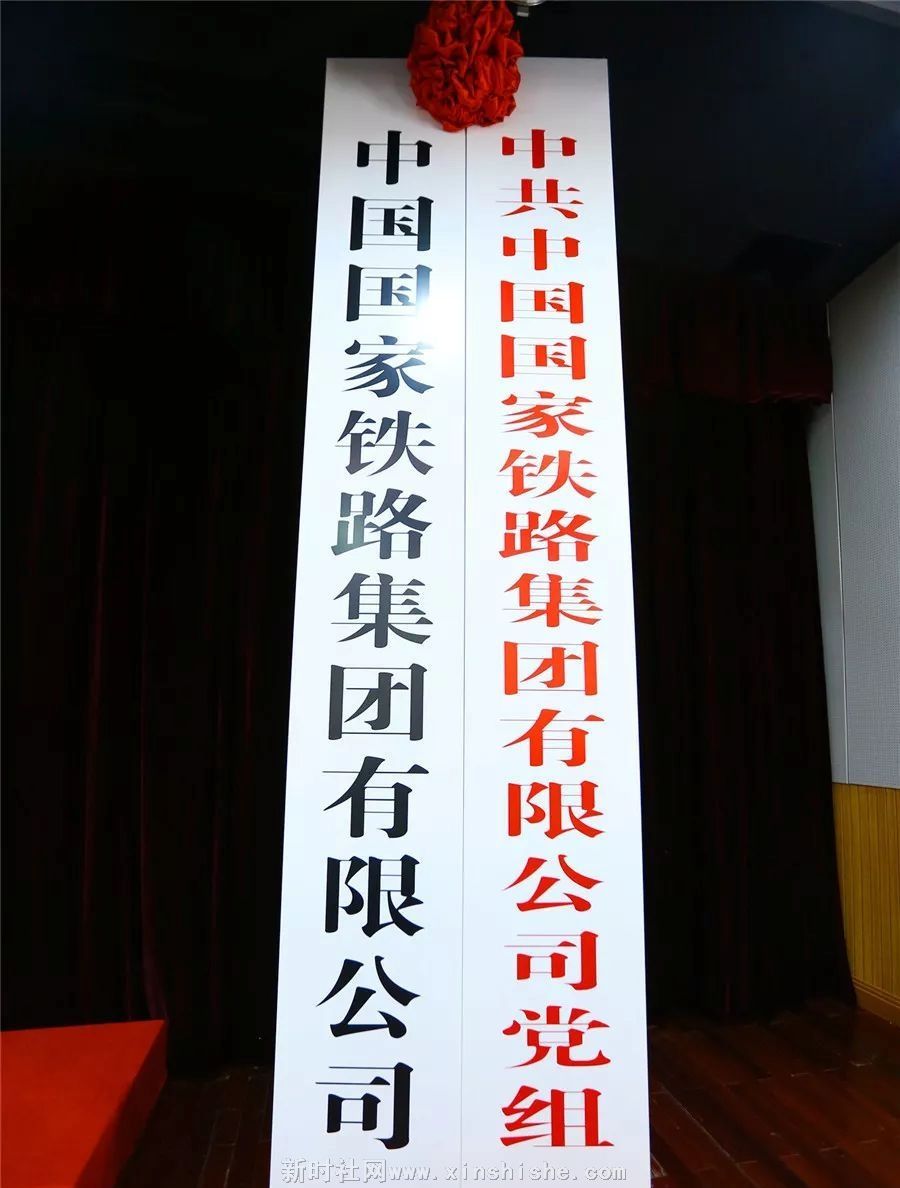 中共中国国家铁路集团有限公司党组
中国国家铁路集团有限公司
新时社网www.xinshishe.com